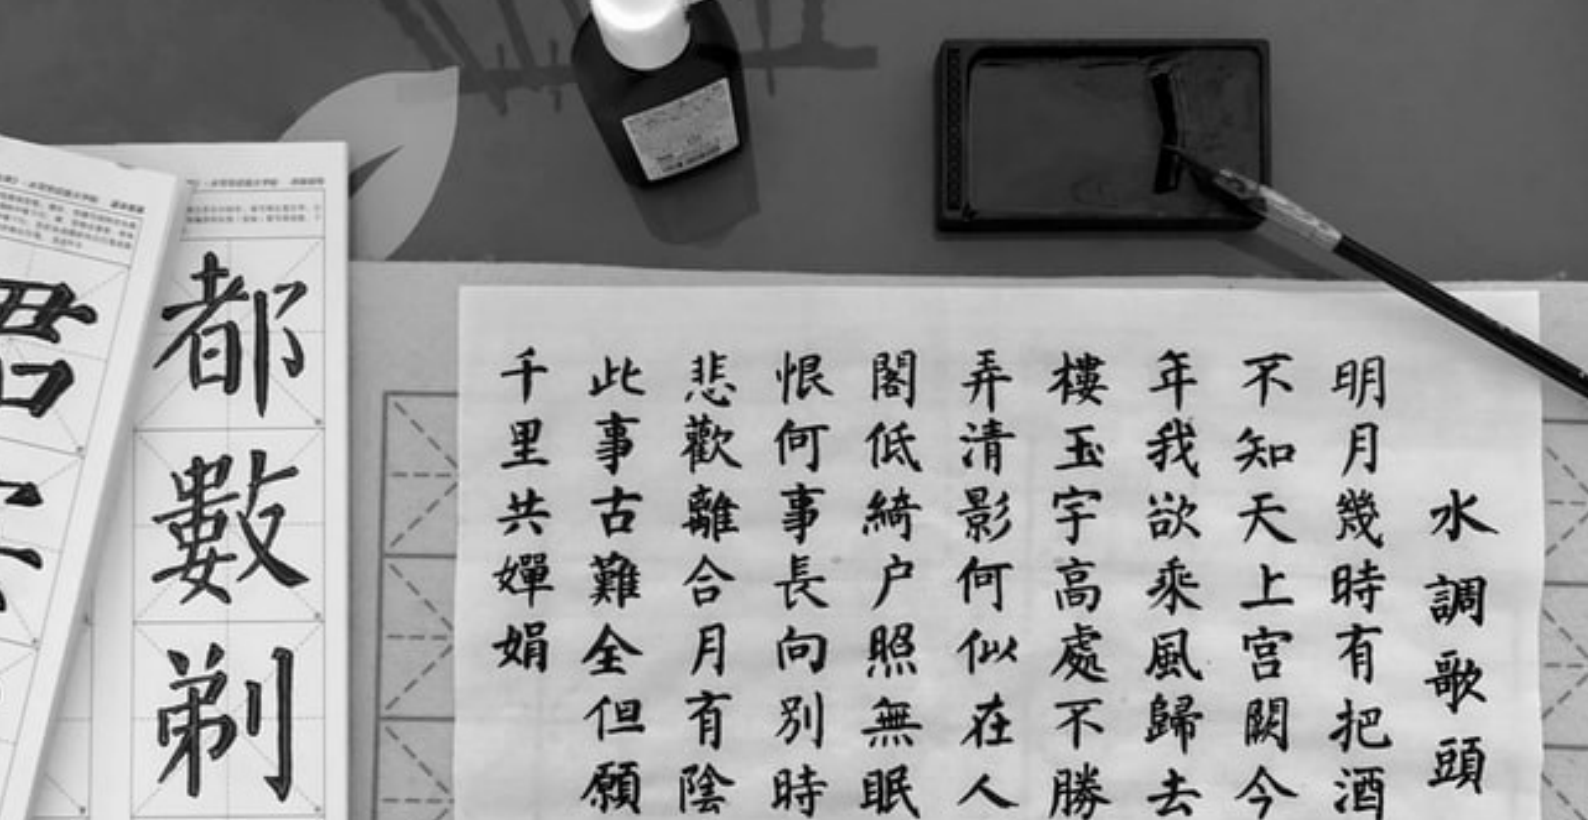 水調歌頭
明月幾時有把酒
不知天上宮闕今
年我欲乘風歸去
樓玉宇高處不勝
弄清影何似在人
閣低綺户照無眠
恨何事長向別時
悲歡離合月有陰
此事古難全但願
千里共嬋娟
都數剃